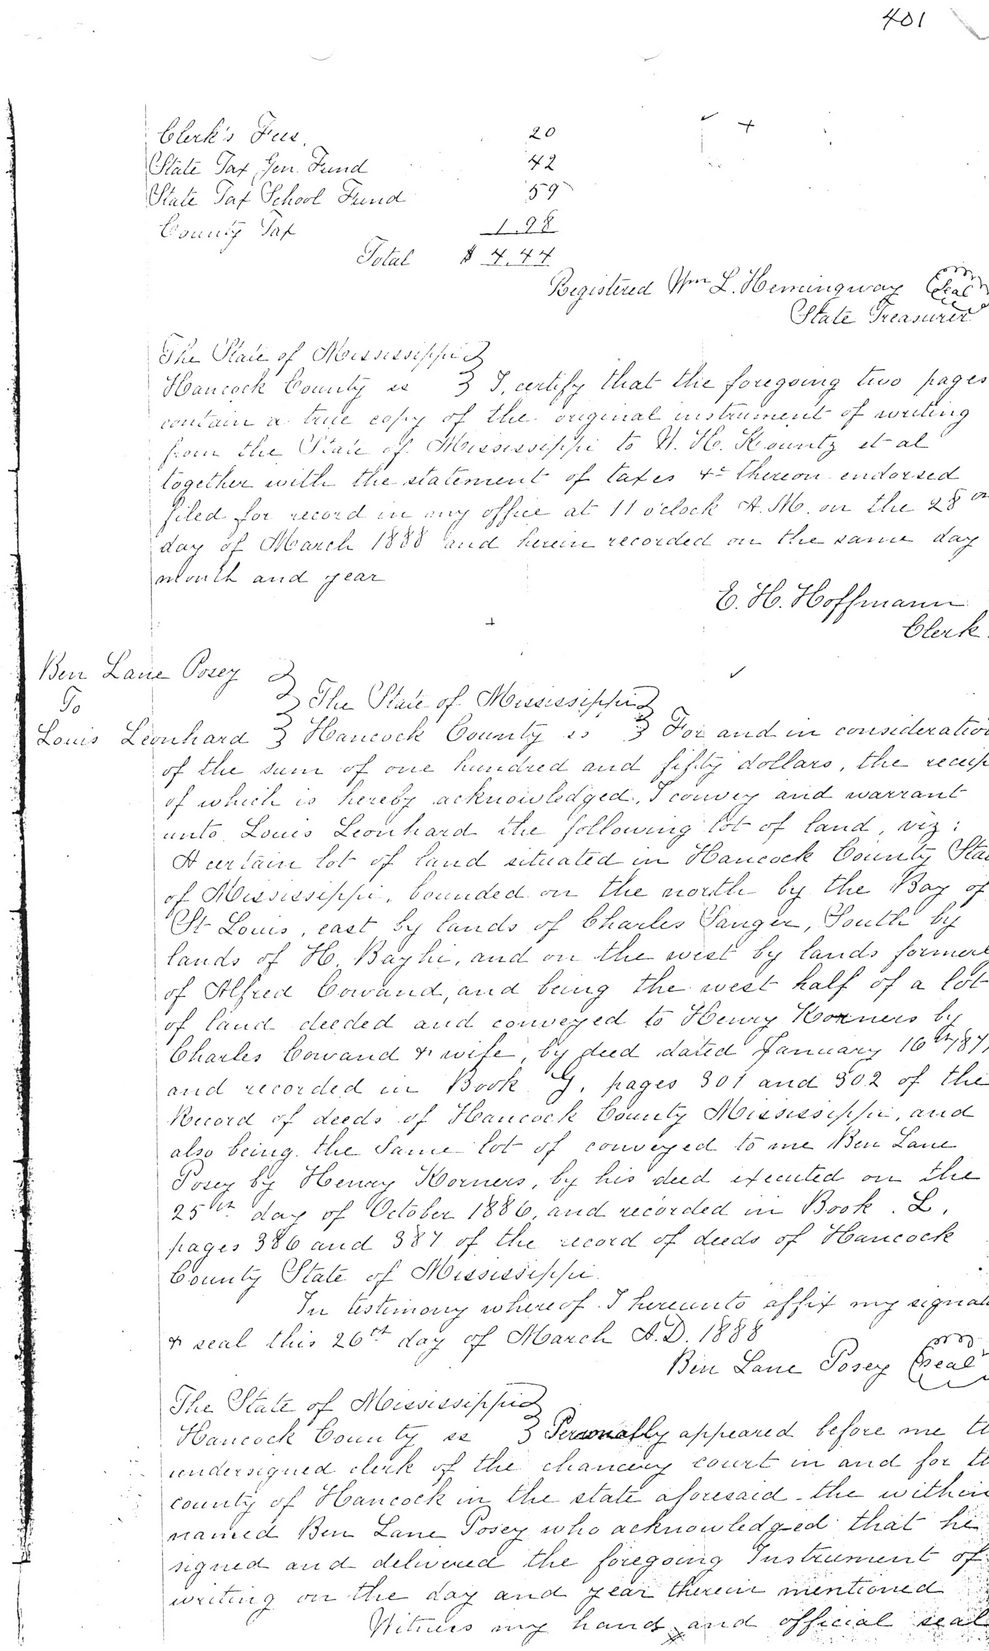 401
Clerk's Fees. 20
State Tax Gen. Fund 42
State Tax School Fund 59
County Tax 1.98
Total $ 4.44
Registered Wm L. Hemingway (Seal)
State Treasurer
The State of Mississippi }
Hancock County ss } I, certify that the foregoing two pages
contain a true copy of the original instrument of writing
from the State of Mississippi to H. Kountz et al
together with the statement of taxes &c thereon endorsed
filed for record in my office at 11 o'clock A.M. on the 28
day of March 1888 and herein recorded on the same day
month and year
E. H. Hoffmann
Clerk.
Ben Lane Posey }
To } The State of Mississippi }
Louis Leonhard } Hancock County ss } For and in consideration
of the sum of one hundred and fifty dollars, the receip
of which is hereby acknowledged, I convey and warrant
unto Louis Leonhard the following lot of land, viz:
A certain lot of land situated in Hancock County Sta
of Mississippi, bounded on the north by the Bay of
St Louis, east by lands of Charles Sanger, South by
lands of H. Bayhi, and on the west by lands former
of Alfred Cowand, and being the west half of a lot
of land deeded and conveyed to Henry Korners by
Charles Cowand & wife, by deed dated January 16th
and recorded in Book J, pages 301 and 302 of the
Record of deeds of Hancock County Mississippi, and
also being the same lot of conveyed to me Ben Lane
Posey by Henry Korners, by his deed executed on the
25th day of October 1886, and recorded in Book. L,
pages 386 and 387 of the record of deeds of Hancock
County State of Mississippi.
In testimony whereof I hereunto affix my signat
& seal this 26th day of March A.D. 1888
Ben Lane Posey (Seal)
The State of Mississippi }
Hancock County ss } Personally appeared before me th
undersigned clerk of the chancery court in and for th
county of Hancock in the state aforesaid - the within
named Ben Lane Posey who acknowledged that he
signed and delivered the foregoing Instrument of
writing on the day and year therein mentioned
Witness my hand and official seal